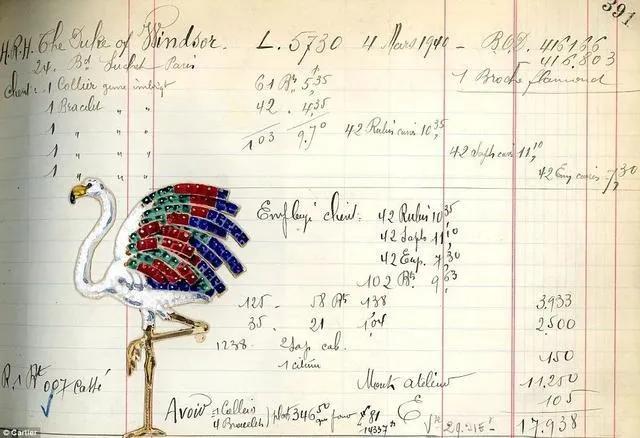 391
H.R.H. The Duke of Windsor. L. 5730 4 Mars 1940 - B.O.D. 416166
24. Bd Suchet Paris 416.803
client: 1 Collier 61 Bts 5,35 1 Broche flamand
1 Bracelet 42. 4,35
1 " " 103 9,70 42 Rubis carrés 10,35
1 " " 42 saphs carrés 11,10
1 " " 42 Em carrées 7,30
Employé client: 42 Rubis 10,35
42 Saphs 11,10
42 Em. 7,30
102 Bts 9,63
125 - 58 Bts 1,38 3.933
35. 21 1,04 2.500
1238 - 2 Sap cab.
1 citrine 150
Monts atelier 11.250
R. 1 Bt 0,07 Cassé 105
Avoir = 1 Collier
4 Bracelets plat 346,50
17.938
© Cartier